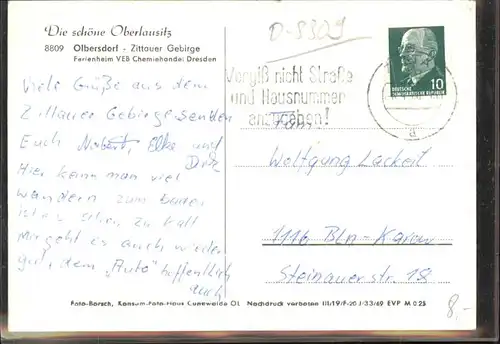 Die schöne Oberlausitz
8809 Olbersdorf - Zittauer Gebirge
Ferienheim VEB Chemiehandel Dresden
Viele Grüße aus dem
Zittauer Gebirge senden
Euch Norbert, Elke und
Hier kann man viel
wandern zum baden
ist es schon zu kalt
Mir geht es auch wieder
gut, dem „Auto" hoffentlich
auch
D-8809
Vergiß nicht Straße
und Hausnummer
anzugeben!
DEUTSCHE
DEMOKRATISCHE REPUBLIK
10
a
Fam.
Wolfgang Lackeit
1116 Bln-Karow
Steinauerstr. 18
Foto-Borsch, Konsum-Foto-Haus Cunewalde OL Nachdruck verboten III/19/P-20 J-33/69 EVP M 0.25
8,-